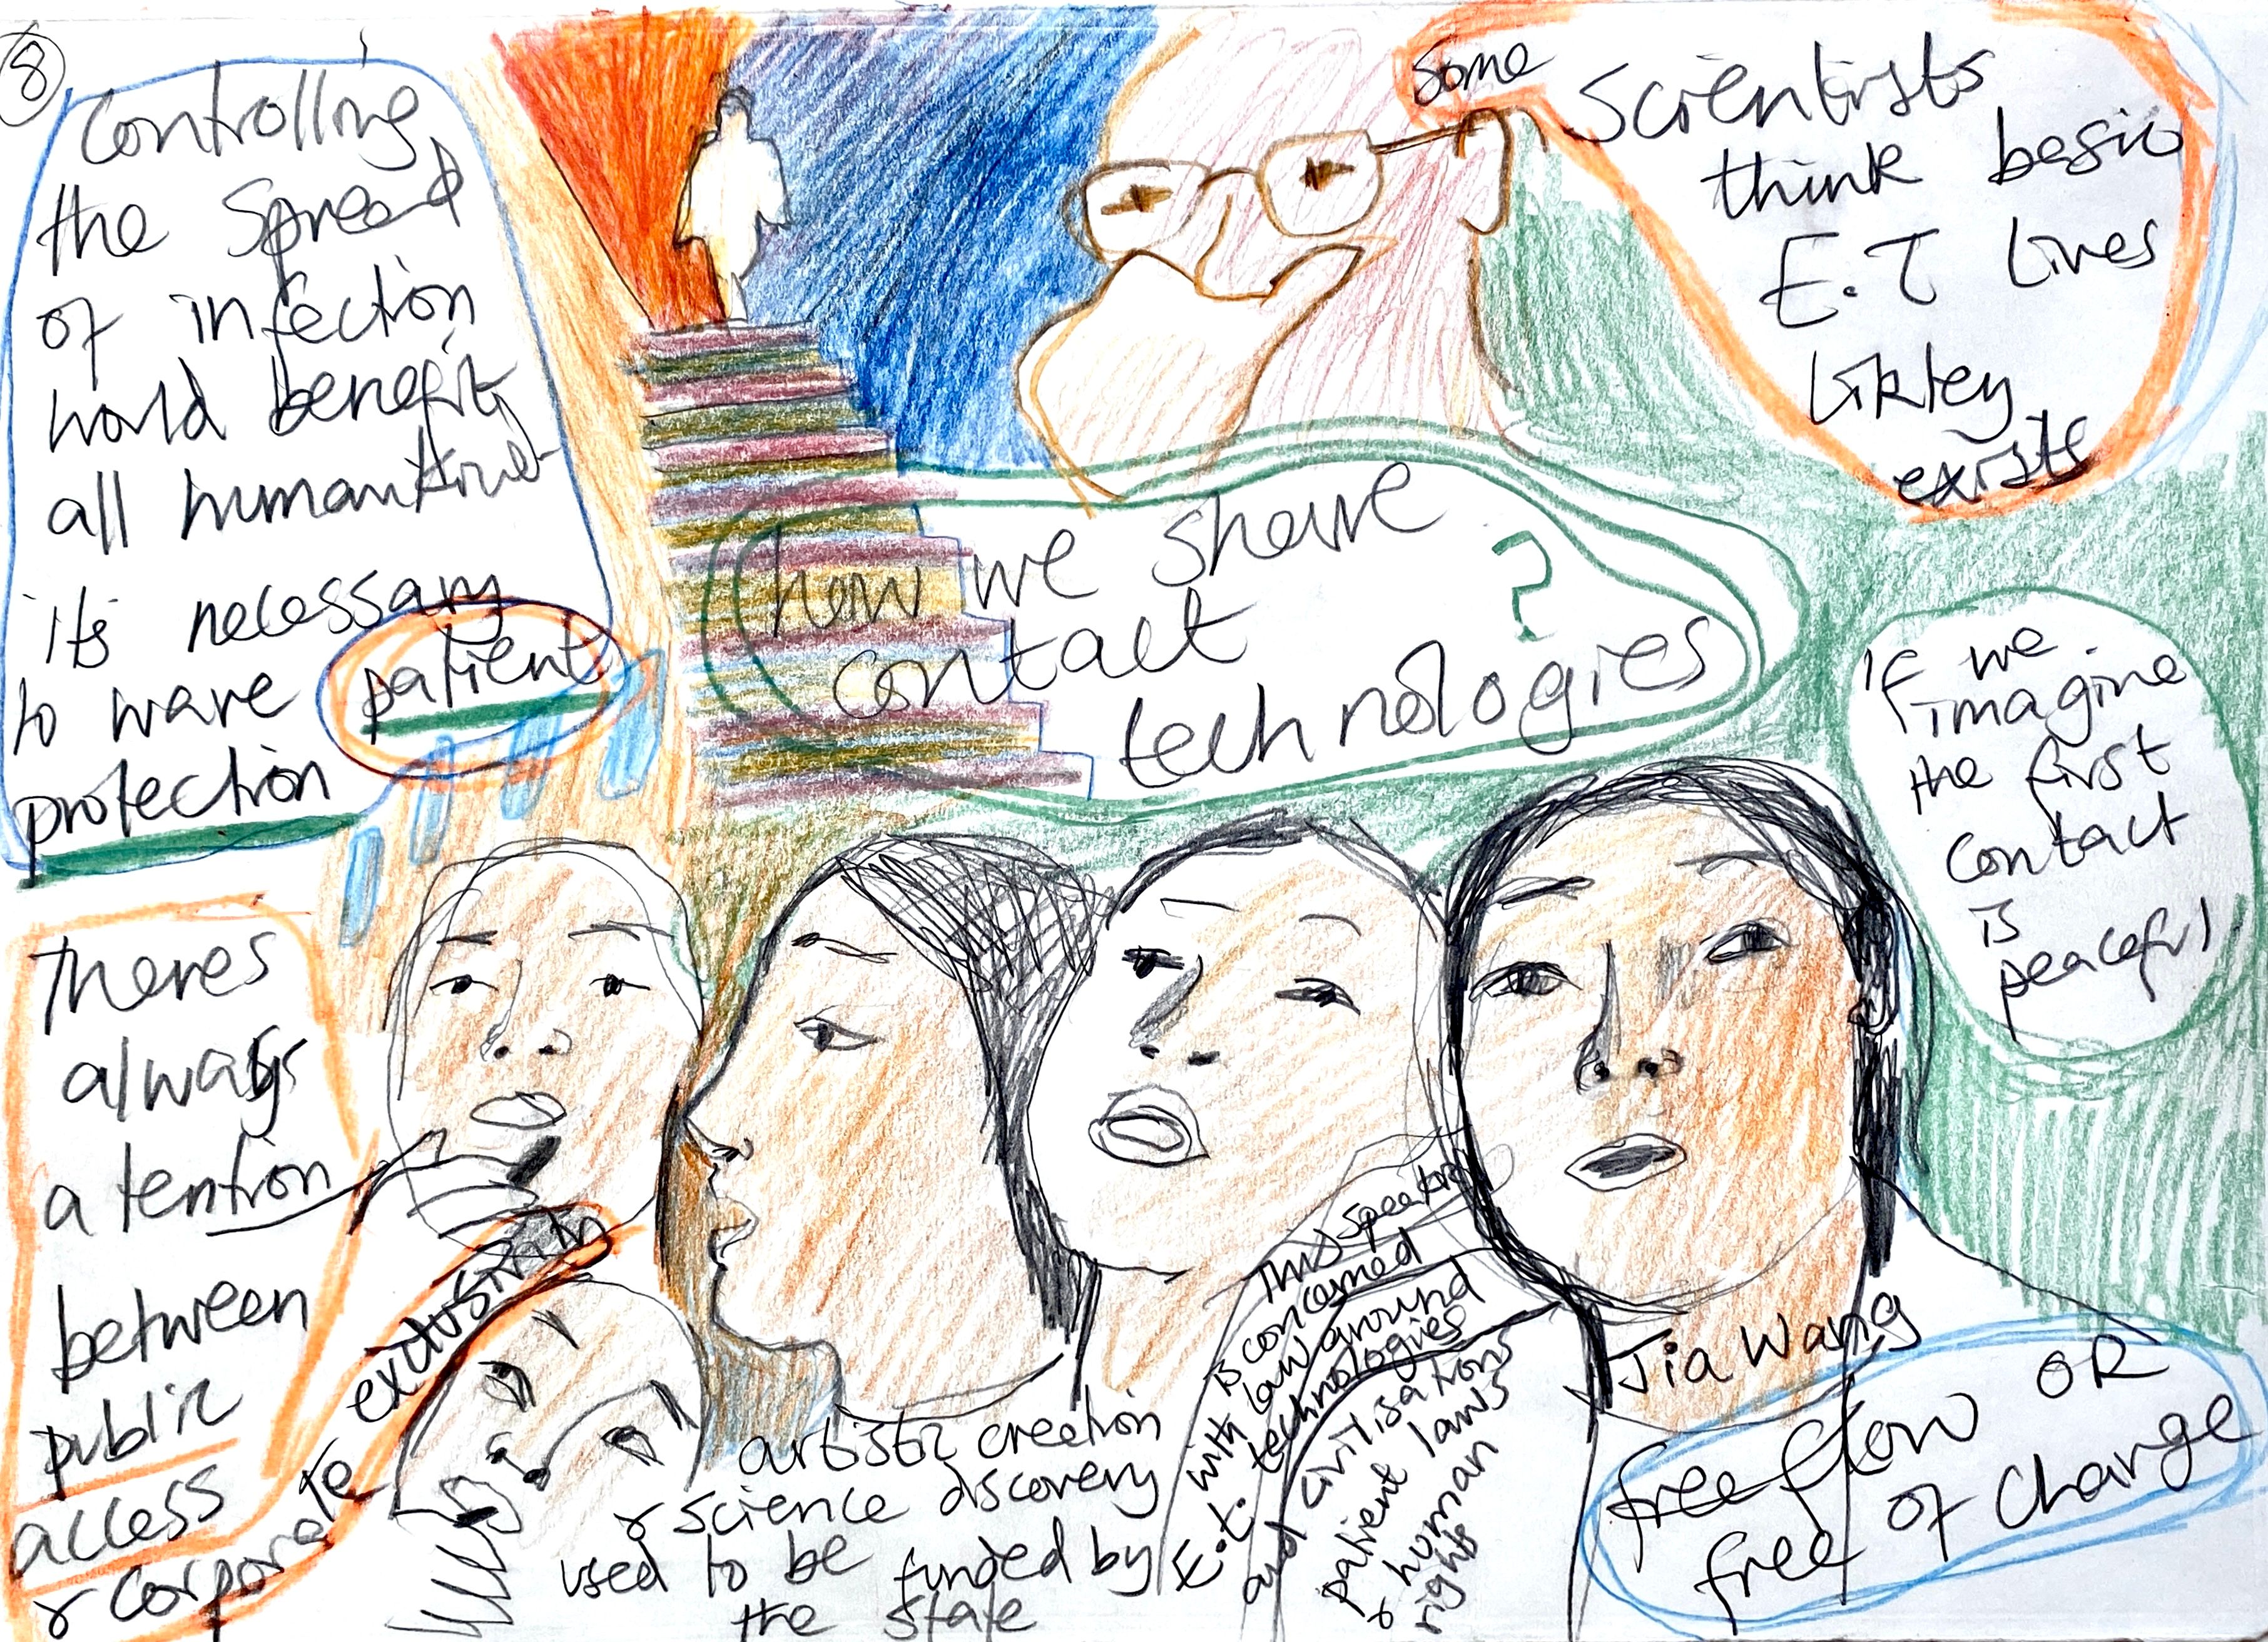 8
Controlling
the spread
of infection
would benefit
all humankind
its necessary
to wave patient
protection
Some
Scientists
think basic
E.T lives
likley
exists
how we share
contact
technologies ?
if we
imagine
the first
contact
is
peaceful
theres
always
a tention
between
public
access
& corporate exclusivity
artistic creation
& science discovery
used to be funded by
the state
This speaker
is concerned
with law around
E.t. technologies
and civilisations
patient laws
& human
rights
Jia Wang
free flow OR
free of charge